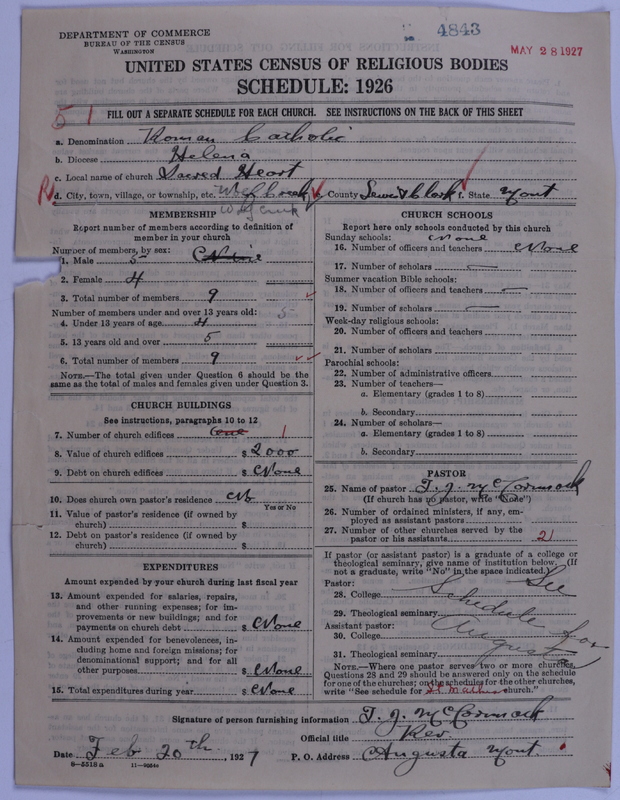 4843
DEPARTMENT OF COMMERCE
BUREAU OF THE CENSUS
WASHINGTON
MAY 28 1927
UNITED STATES CENSUS OF RELIGIOUS BODIES
SCHEDULE: 1926
51
FILL OUT A SEPARATE SCHEDULE FOR EACH CHURCH. SEE INSTRUCTIONS ON THE BACK OF THIS SHEET
a. Denomination Roman Catholic
b. Diocese Helena
c. Local name of church Sacred Heart
d. City, town, village, or township, etc. Wolf Creek e. County Lewis & Clark f. State Mont
Wolf Creek
MEMBERSHIP
Report number of members according to definition of
member in your church
Number of members, by sex:
1. Male 5
2. Female 4
3. Total number of members 9
Number of members under and over 13 years old:
4. Under 13 years of age 4
5. 13 years old and over 5
6. Total number of members 9
NOTE.—The total given under Question 6 should be
same as the total of males and females given under Question 3.
CHURCH BUILDINGS
See instructions, paragraphs 10 to 12
7. Number of church edifices One 1
8. Value of church edifices $ 2000
9. Debt on church edifices $ None
10. Does church own pastor's residence No
Yes or No
11. Value of pastor's residence (if owned by
church) $
12. Debt on pastor's residence (if owned by
church) $
EXPENDITURES
Amount expended by your church during last fiscal year
13. Amount expended for salaries, repairs,
and other running expenses; for im-
provements or new buildings; and for
payments on church debt $ None
14. Amount expended for benevolences, in-
cluding home and foreign missions; for
denominational support; and for all
other purposes $ None
15. Total expenditures during year $ None
CHURCH SCHOOLS
Report here only schools conducted by this church
Sunday schools: None
16. Number of officers and teachers None
17. Number of scholars —
Summer vacation Bible schools:
18. Number of officers and teachers —
19. Number of scholars —
Week-day religious schools:
20. Number of officers and teachers
21. Number of scholars
Parochial schools:
22. Number of administrative officers
23. Number of teachers—
a. Elementary (grades 1 to 8)
b. Secondary
24. Number of scholars—
a. Elementary (grades 1 to 8)
b. Secondary
PASTOR
25. Name of pastor T. J. McCormack
(If church has no pastor, write "None")
26. Number of ordained ministers, if any, em-
ployed as assistant pastors
27. Number of other churches served by the
pastor or his assistants 2
If pastor (or assistant pastor) is a graduate of a college or
theological seminary, give name of institution below. (If
not a graduate, write "No" in the space indicated.)
Pastor: See
28. College Schedule for
29. Theological seminary
Assistant pastor: Augusta
30. College
31. Theological seminary
NOTE.—Where one pastor serves two or more churches,
Questions 28 and 29 should be answered only on the schedule
for one of the churches; on the schedules for the other churches,
write "See schedule for St Mathews church."
Signature of person furnishing information T. J. McCormack
Official title Rev.
Date Feb 20th, 1927 P. O. Address Augusta Mont.
8-5518a 11-9954